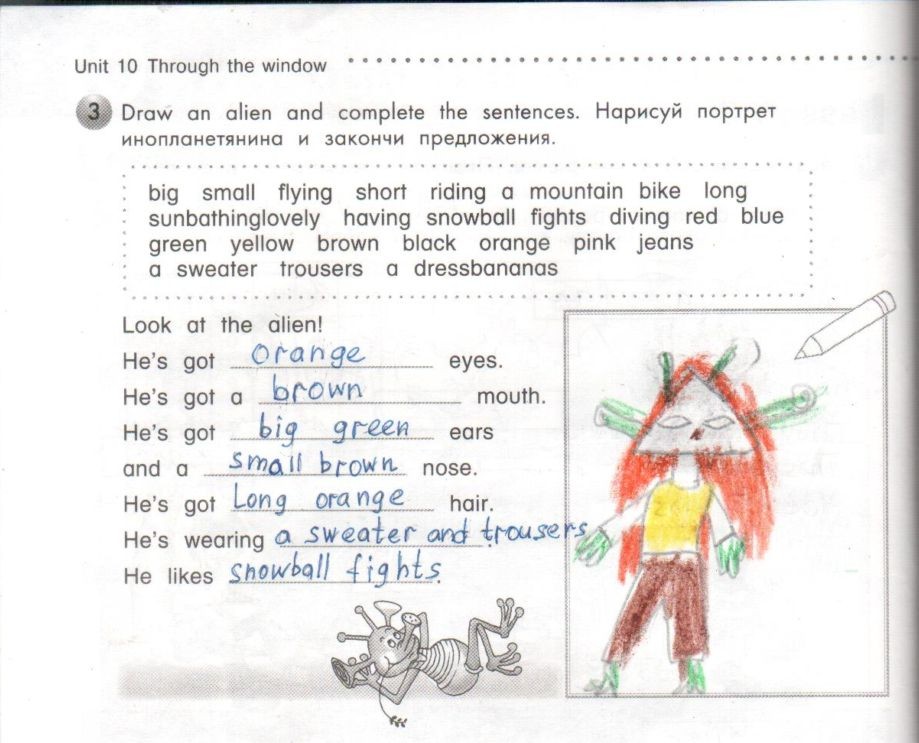 Unit 10 Through the window
3 Draw an alien and complete the sentences. Нарисуй портрет
инопланетянина и закончи предложения.
big small flying short riding a mountain bike long
sunbathinglovely having snowball fights diving red blue
green yellow brown black orange pink jeans
a sweater trousers a dressbananas
Look at the alien!
He's got orange eyes.
He's got a brown mouth.
He's got big green ears
and a small brown nose.
He's got Long orange hair.
He's wearing a sweater and trousers
He likes snowball fights.